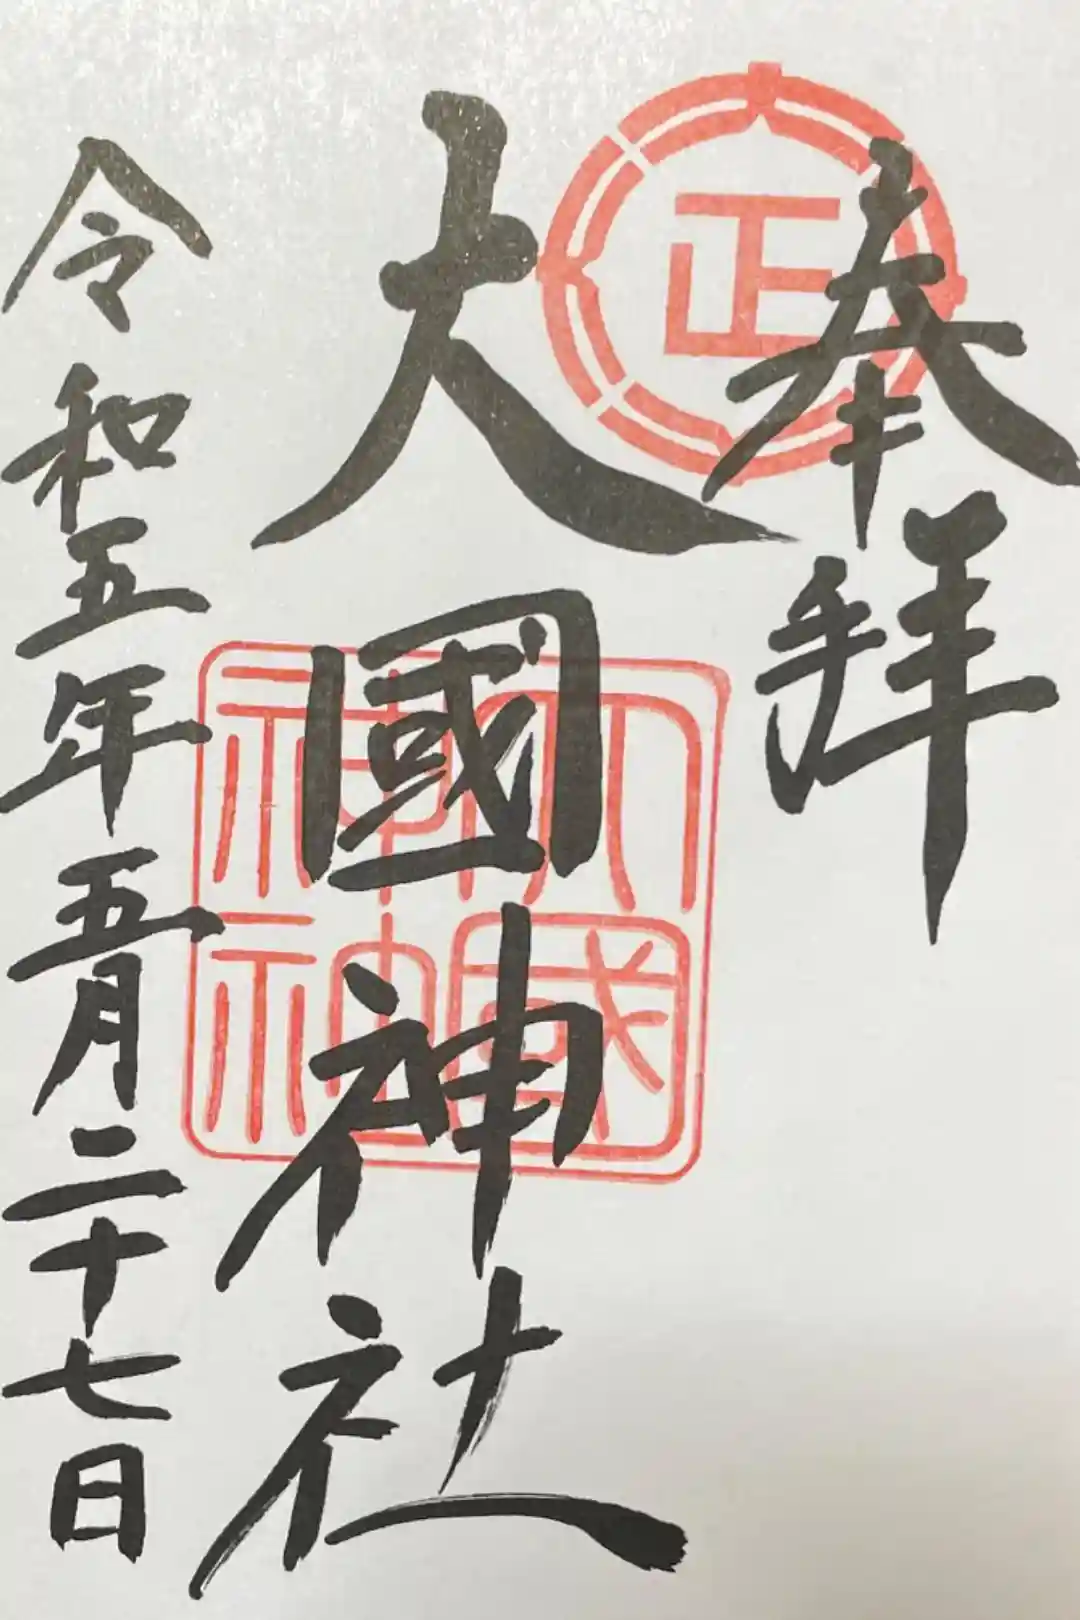 奉拜
正
大國神社
大國神社
令和五年五月二十七日